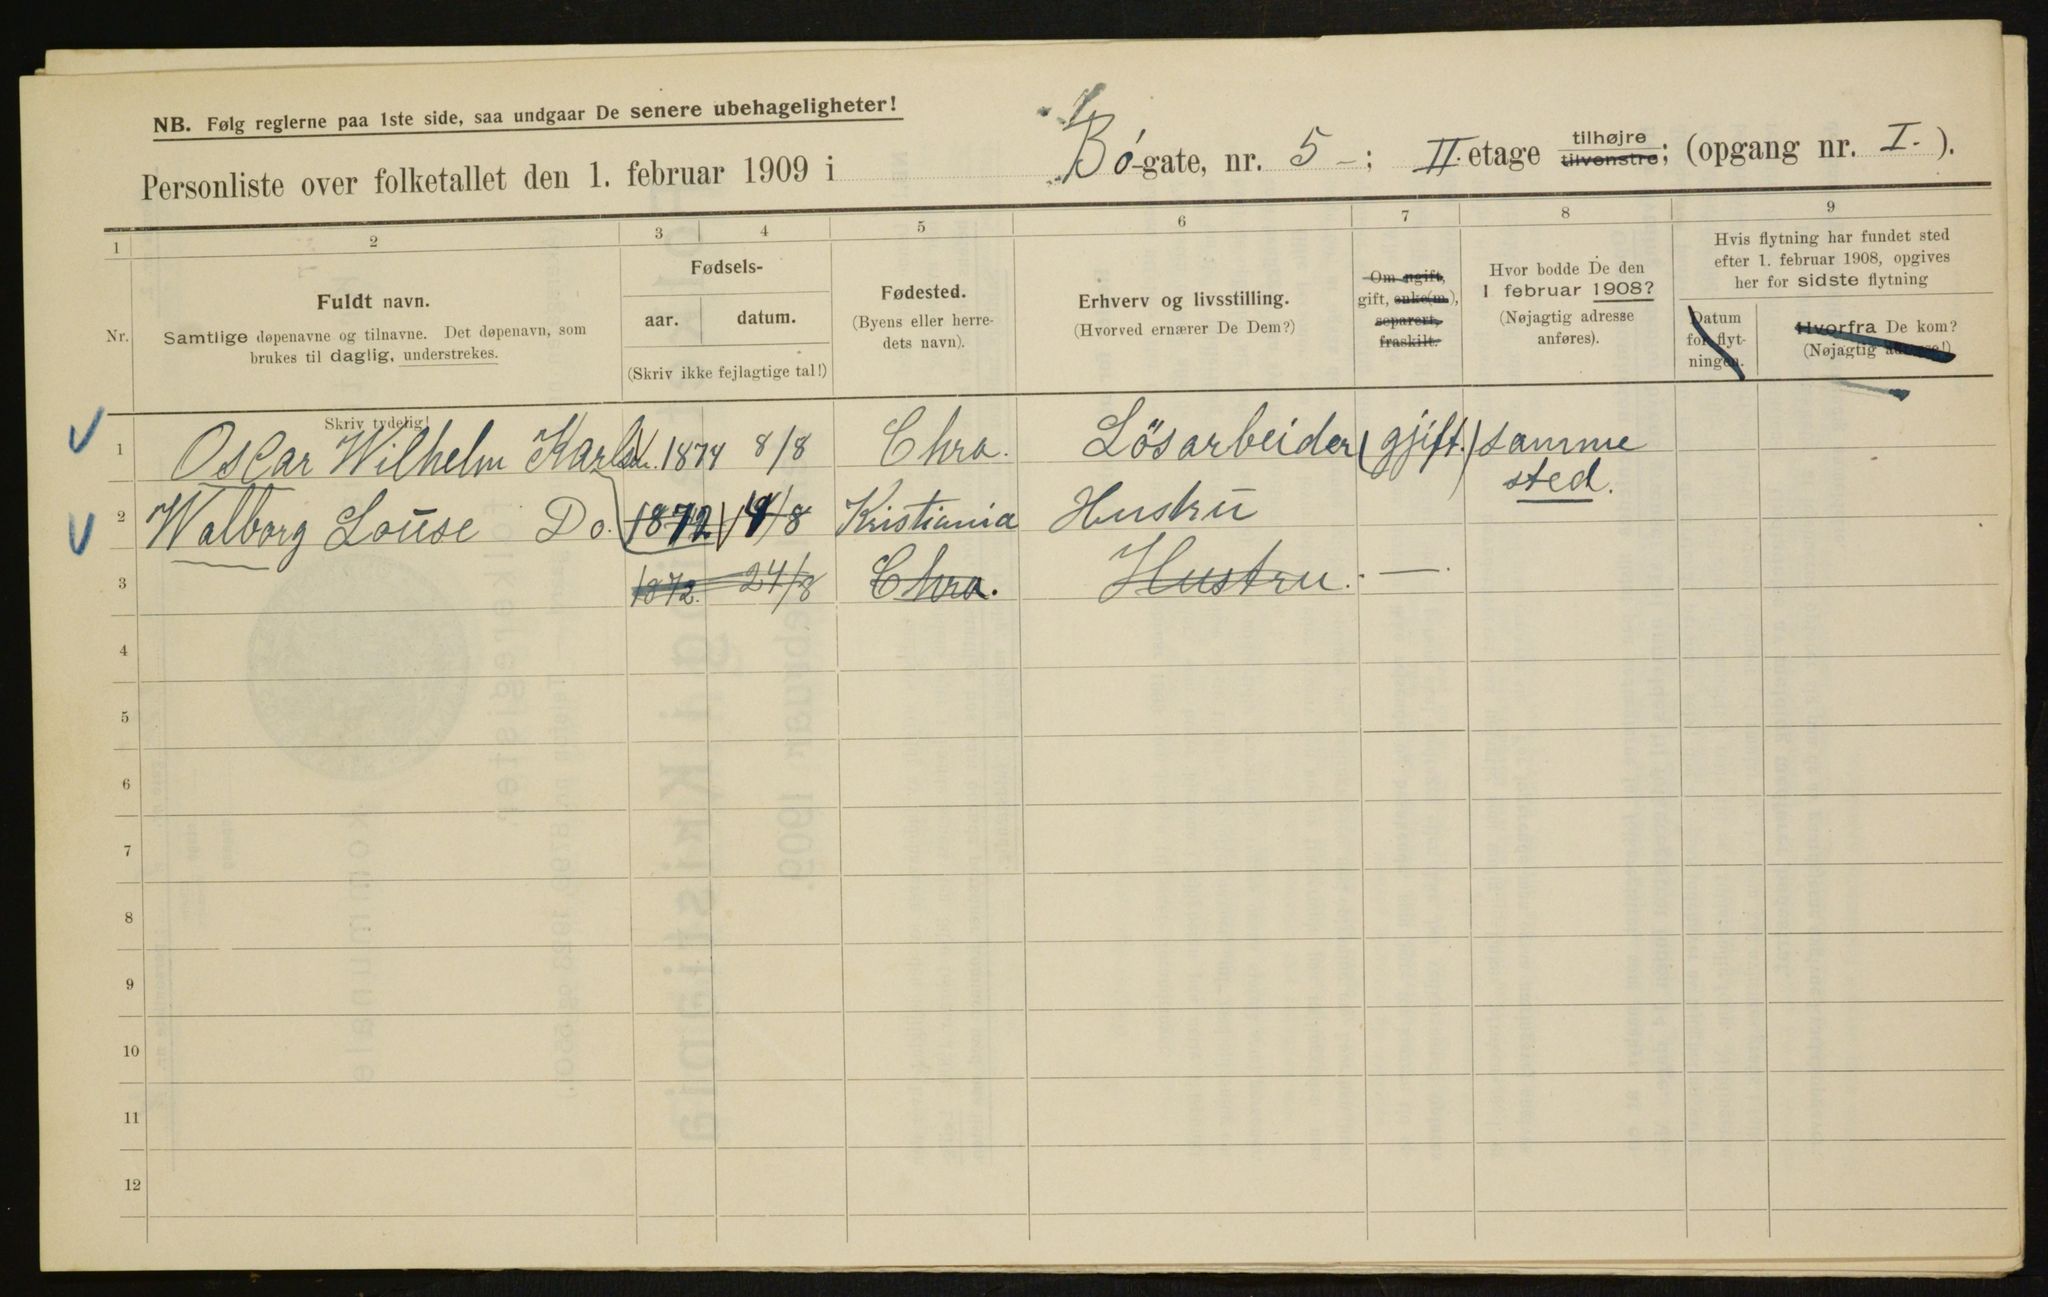 NB. Følg reglerne paa 1ste side, saa undgaar De senere ubehageligheter!
Personliste over folketallet den 1. februar 1909 i Bó-gate, nr. 5 –; II. etage tilhøjre tilvenstre; (opgang nr. I.).
1 2 3 4 5 6 7 8 9
Nr.
Fuldt navn.
Samtlige døpenavne og tilnavne. Det døpenavn, som
brukes til daglig, understrekes.
Fødsels-
aar. datum.
(Skriv ikke fejlagtige tal!)
Fødested.
(Byens eller herre-
dets navn).
Erhverv og livsstilling.
(Hvorved ernærer De Dem?)
Om ugift,
gift, enke(m.),
separert,
fraskilt.
Hvor bodde De den
1 februar 1908?
(Nøjagtig adresse
anføres).
Hvis flytning har fundet sted
efter 1. februar 1908, opgives
her for sidste flytning
Datum
for flyt-
ningen.
Hvorfra De kom?
(Nøjagtig adresse!)
Skriv tydelig!
1 Oscar Wilhelm 1874 8/8 Chra. Lösarbeider gjift. samme
sted.
2 Walborg Louse Do. 1872 /8 Kristiania Hustru
3 1872. 24/8 Chra. Hustru. —
4
5
6
7
8
9
10
11
12